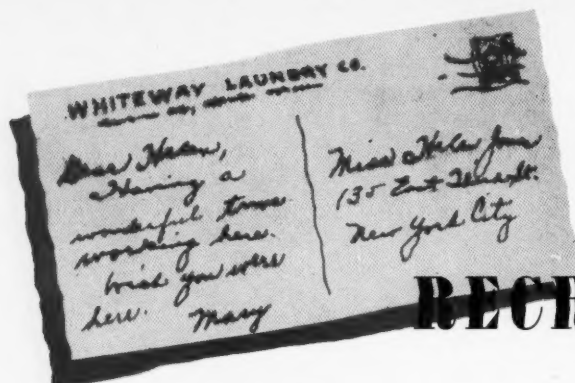 WHITEWAY LAUNDRY CO.
Dear Helen,
Having a
wonderful time
working here.
Wish you were
here. Mary
Miss Helen Jones
135 East St.
New York City
RECR